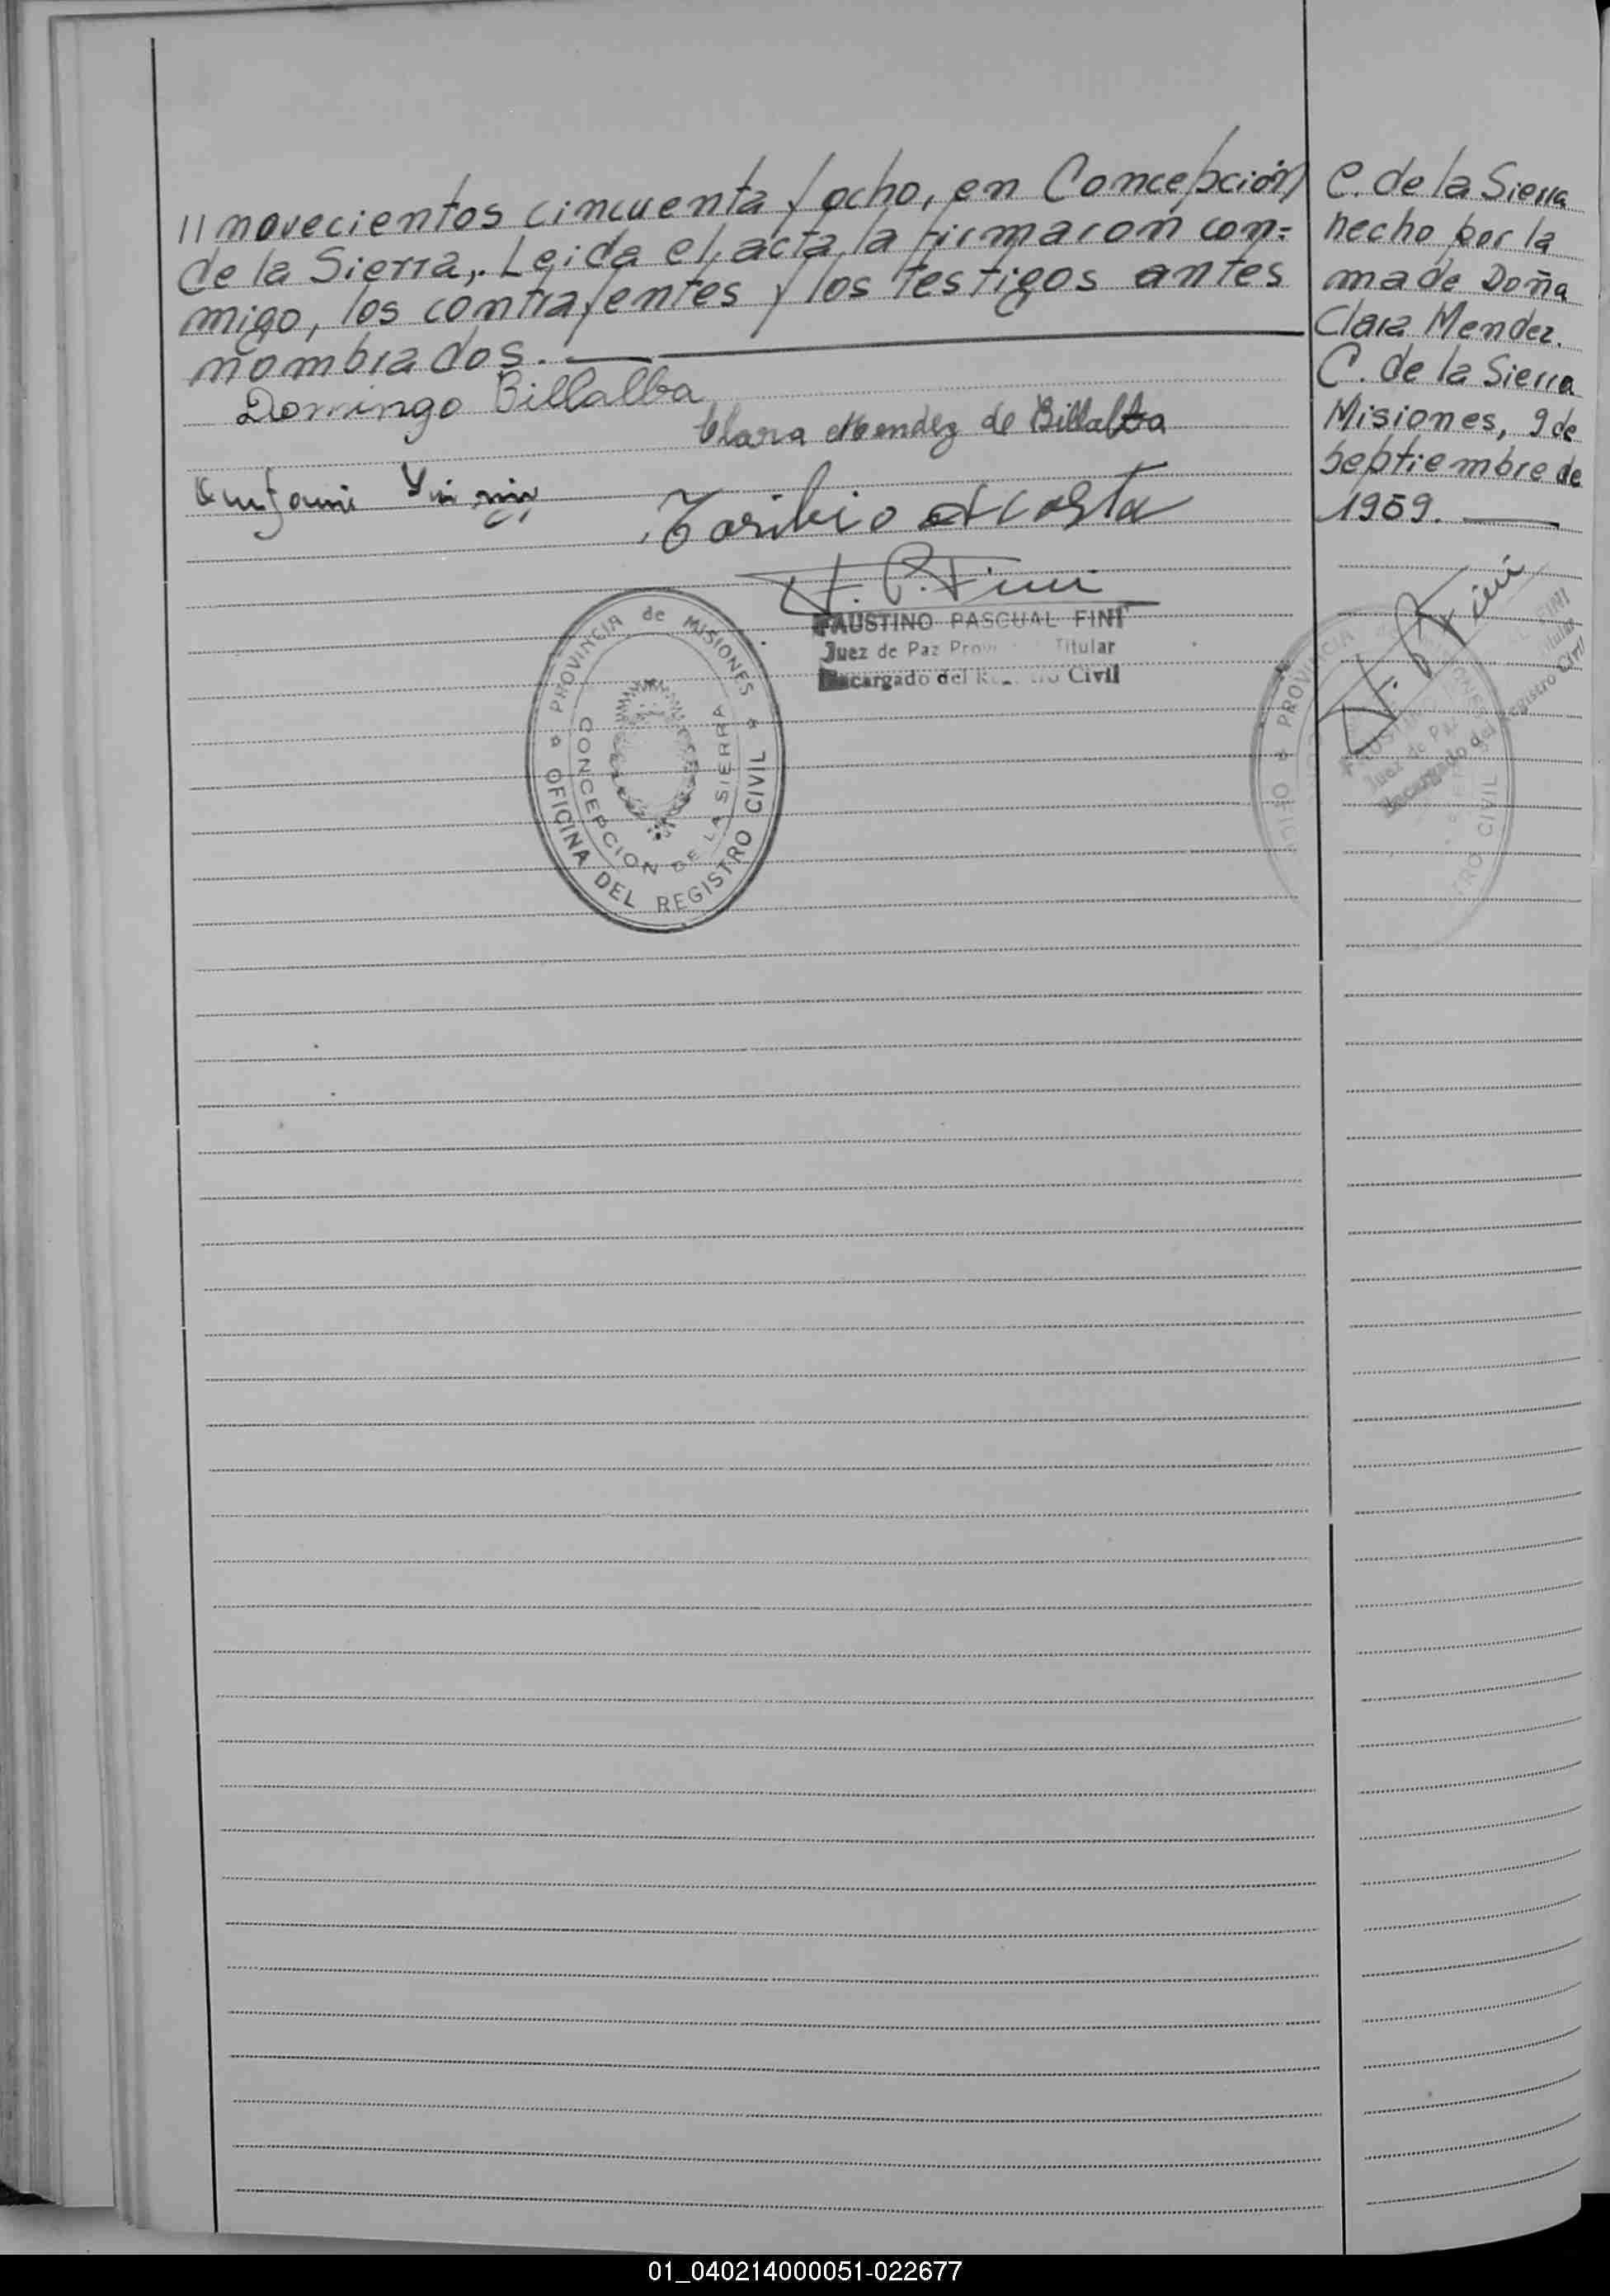 // novecientos cincuenta y ocho, en Concepción
de la Sierra,. Leida el acta la firmaron con-
migo, los contrayentes y los testigos antes
nombrados. —
Domingo Billalba
Clara Mendez de Billalba
Toribio Acosta
F. P. Fini
FAUSTINO PASCUAL FINI
Juez de Paz Titular
Encargado del Civil
PROVINCIA de MISIONES
OFICINA DEL REGISTRO CIVIL
CONCEPCION DE LA SIERRA
C. de la Sierra
hecho por la
ma de Doña
Clara Mendez.
C. de la Sierra
Misiones, 9 de
Septiembre de
1959. —
F. P. Fini
PROVINCIA
CIVIL
FINI
Titular
Juez de Paz
Encargado del Registro Civil
01_040214000051-022677